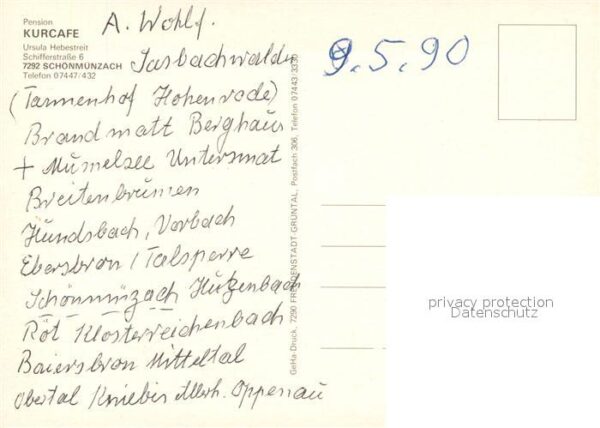 Pension
KURCAFE
Ursula Hebestreit
Schifferstraße 6
7292 SCHÖNMÜNZACH
Telefon 07447/432
A. Wohlf.
Sasbachwalden
(Tannenhof Hohenrode)
Brandmatt Berghaus
+ Mumelsee Untersmat
Breitenbrunnen
Hundsbach, Vorbach
Ebersbron / Talsperre
Schönmünzach Huzenbach
Röt Klosterreichenbach
Baiersbron Mitteltal
Obertal Kniebis Oppenau
9.5.90
GeHa-Druck, 7290 FREUDENSTADT GRÜNTAL, Postfach 306, Telefon 07443-3330
privacy protection
Datenschutz